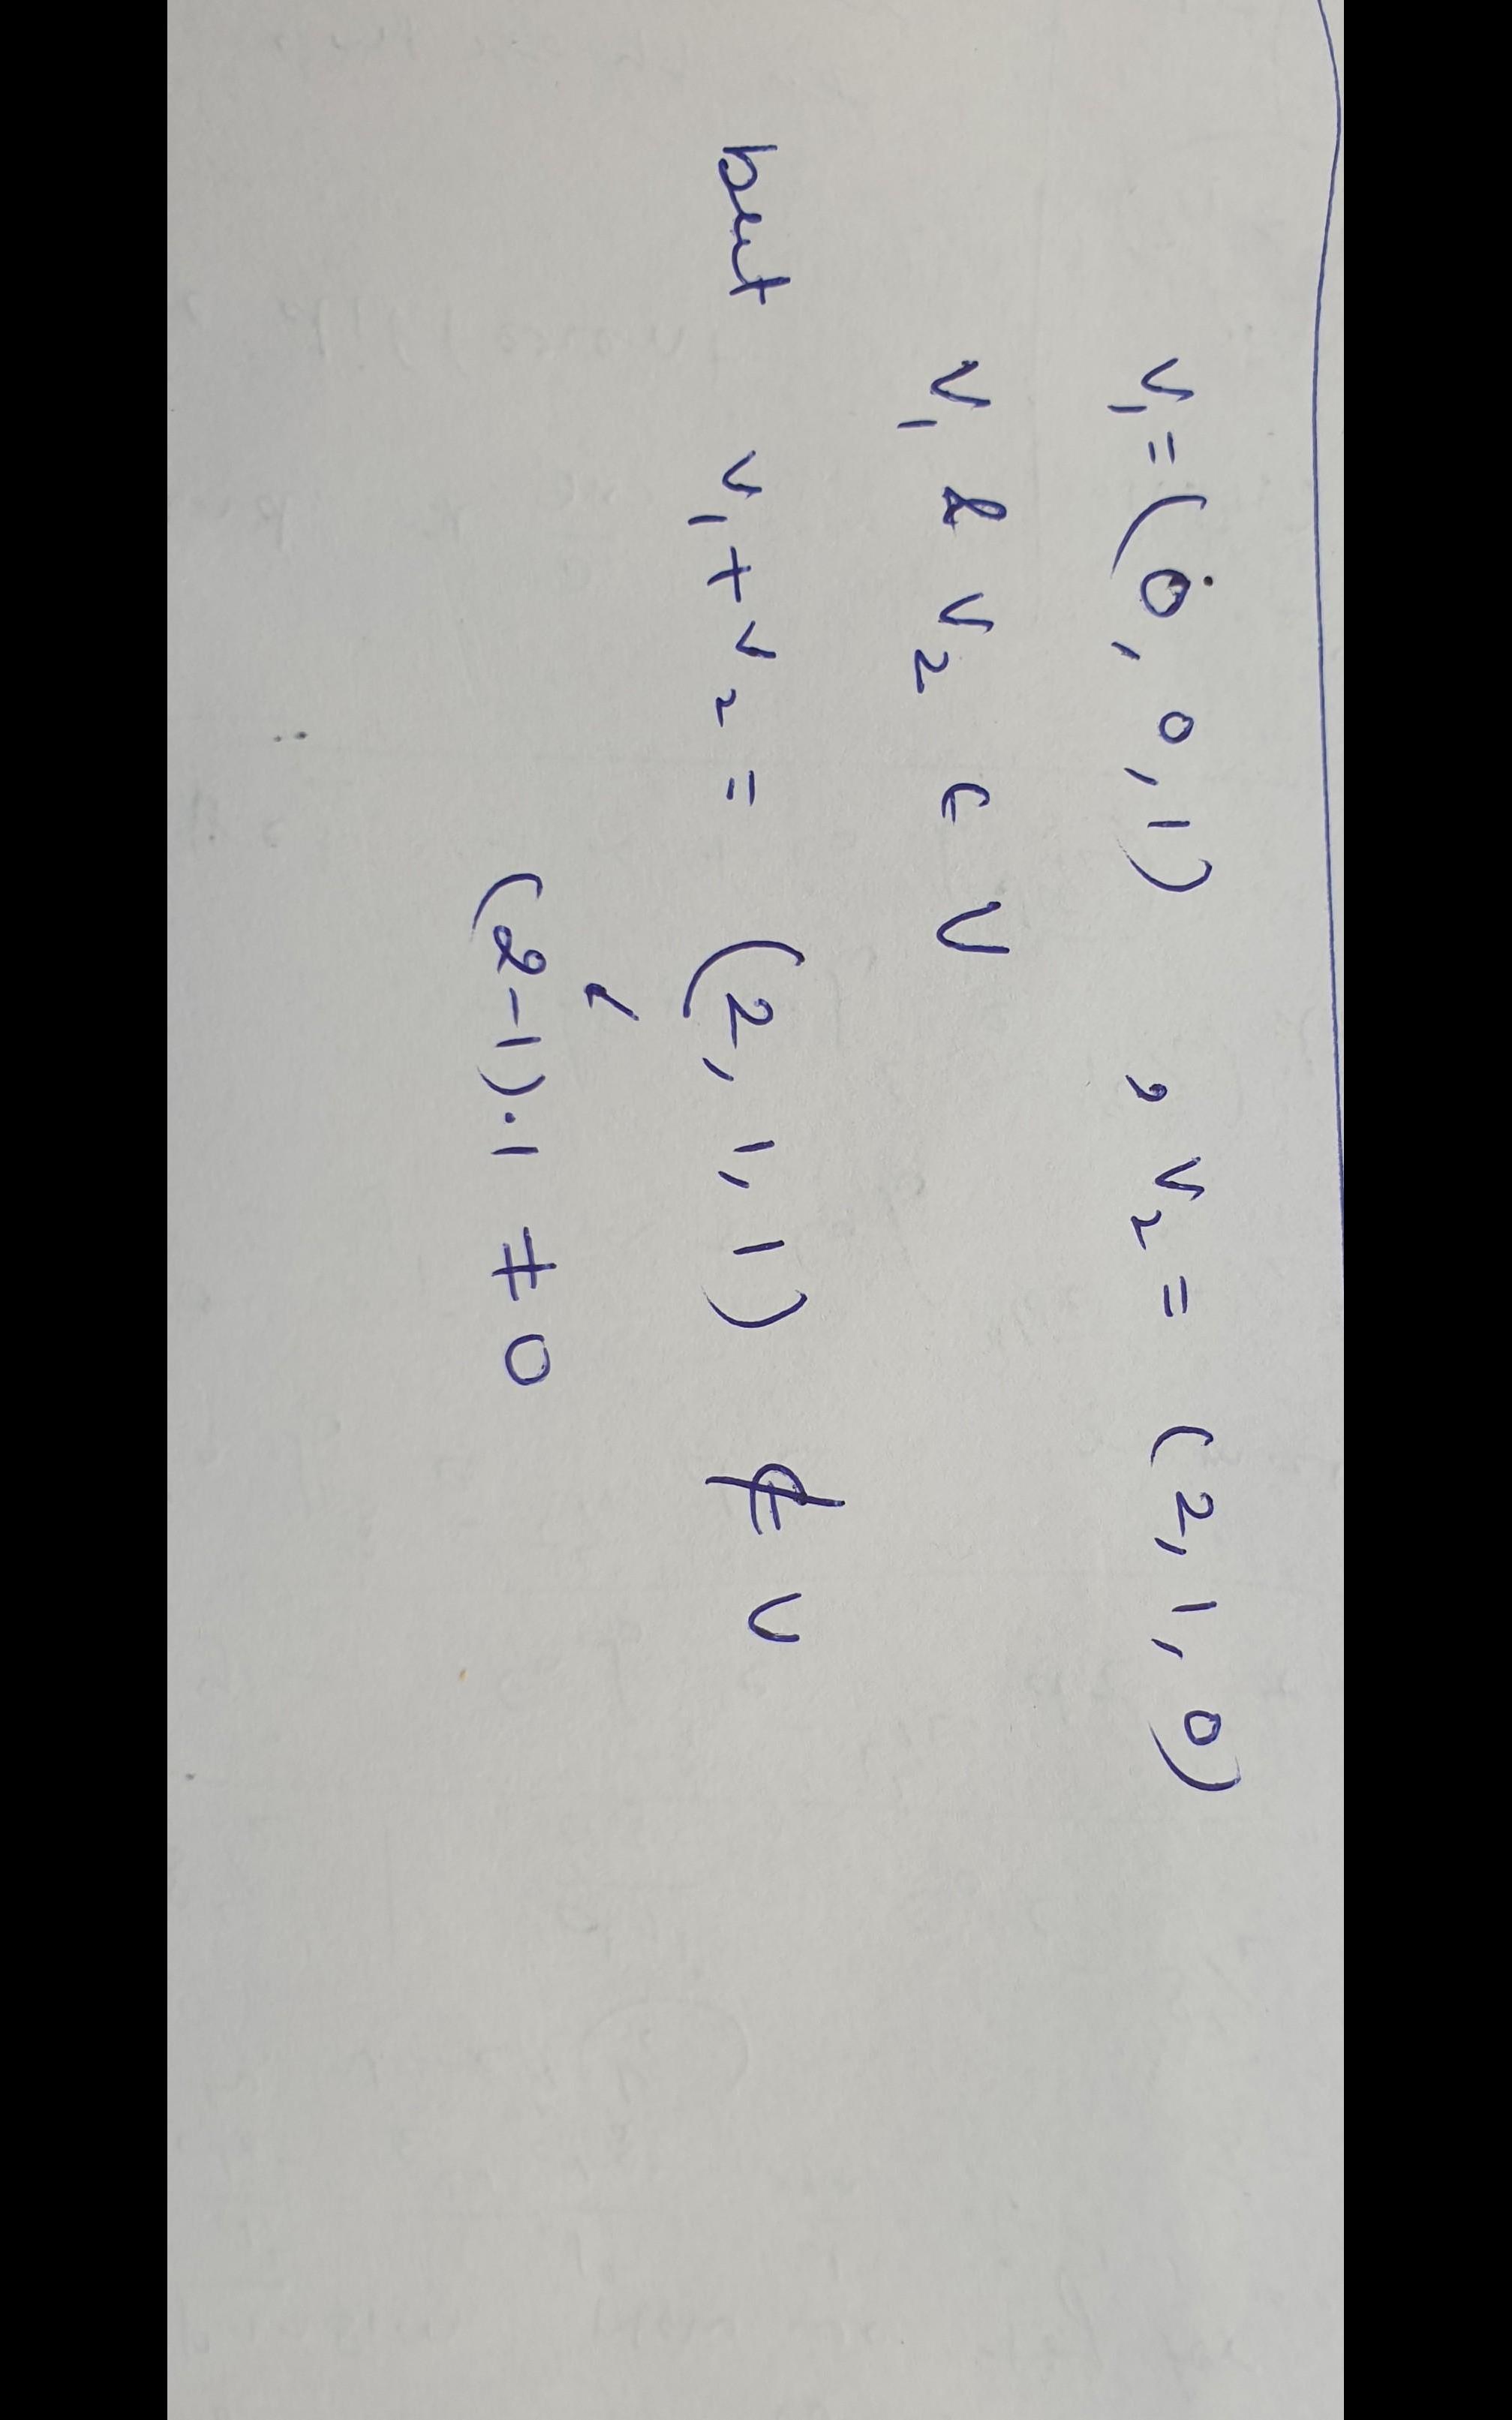 v₁ = (0, 0, 1) , v₂ = (2, 1, 0)
v₁ & v₂ ∈ V
but v₁ + v₂ = (2, 1, 1) ∉ V
(2-1)·1 ≠ 0